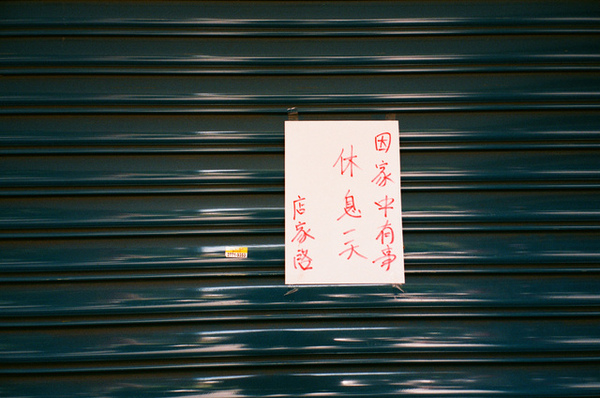 因家中有事
休息一天
店家啟